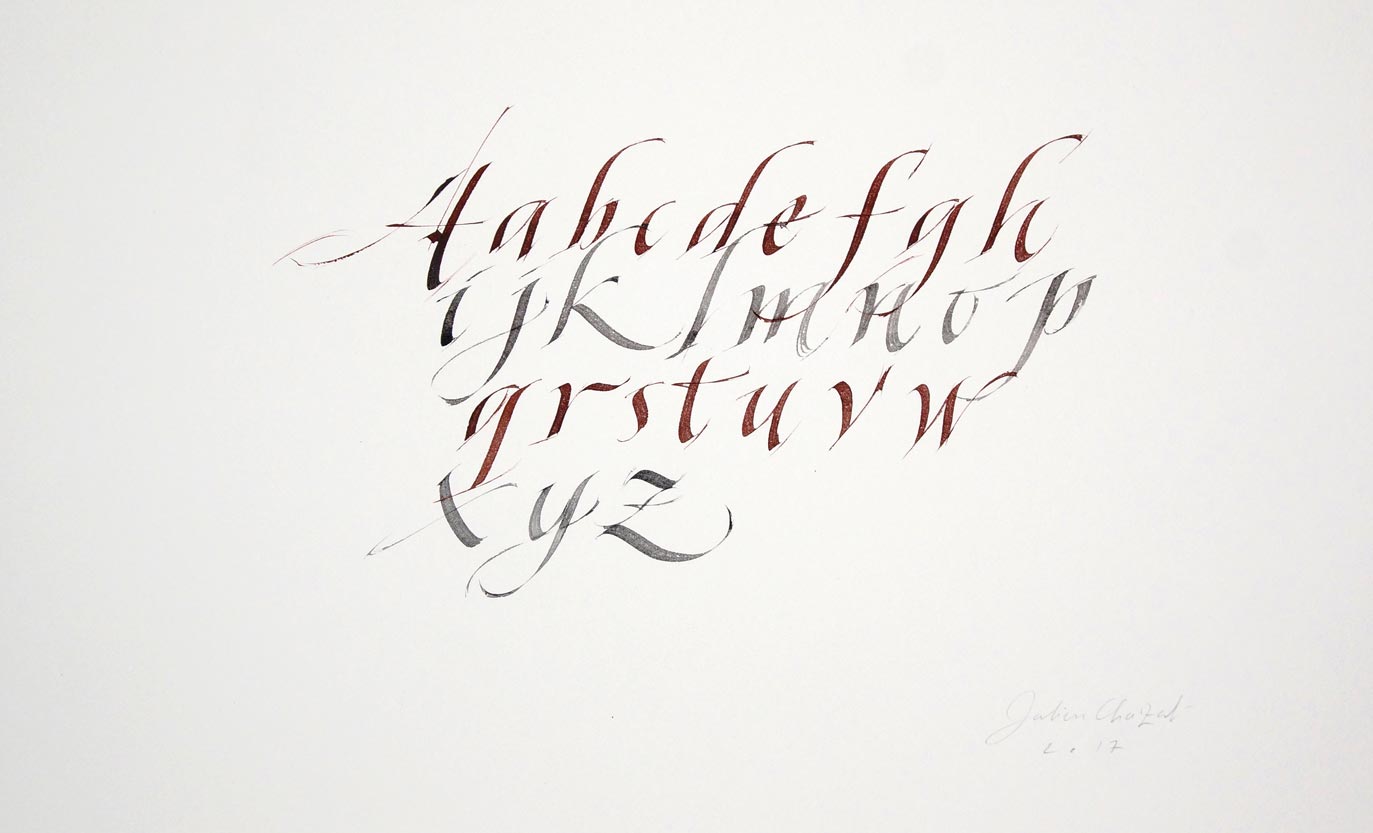 Aabcdefgh
ijklmnop
qrstuvw
xyz
Julien Chazal
2017